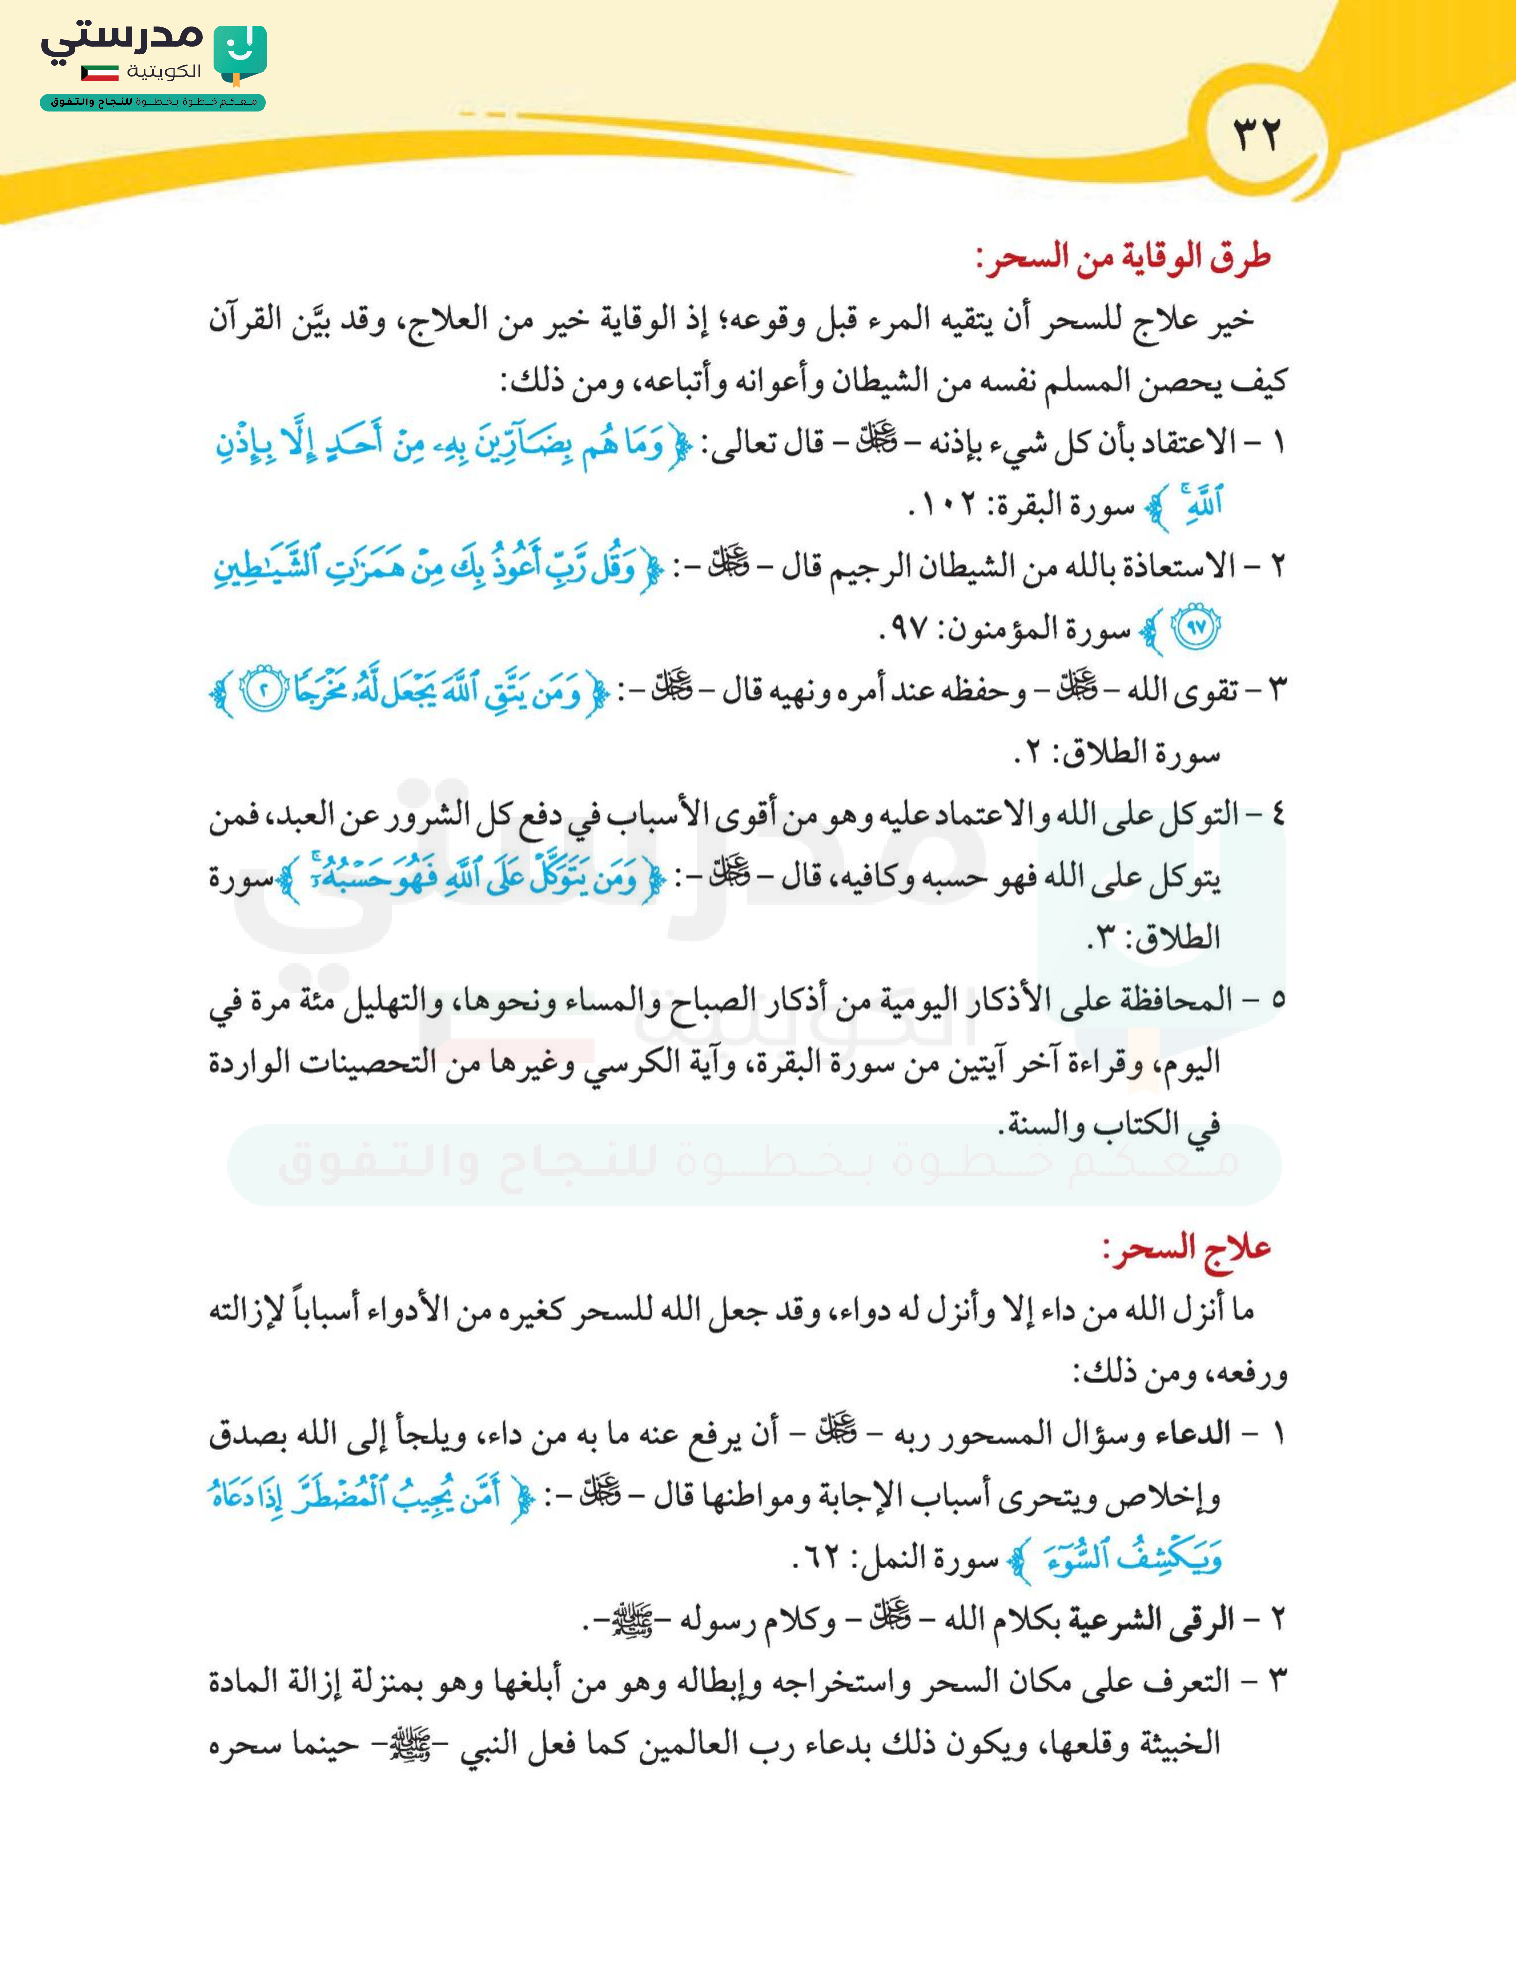 مدرستي
الكويتية
معكم خطوة بخطوة للنجاح والتفوق
٣٢
طرق الوقاية من السحر:
خير علاج للسحر أن يتقيه المرء قبل وقوعه؛ إذ الوقاية خير من العلاج، وقد بيَّن القرآن
كيف يحصن المسلم نفسه من الشيطان وأعوانه وأتباعه، ومن ذلك:
١ - الاعتقاد بأن كل شيء بإذنه - عَزَّ وَجَلَّ - قال تعالى: ﴿ وَمَا هُم بِضَآرِّينَ بِهِۦ مِنْ أَحَدٍ إِلَّا بِإِذْنِ
ٱللَّهِۚ ﴾ سورة البقرة: ١٠٢.
٢ - الاستعاذة بالله من الشيطان الرجيم قال - عَزَّ وَجَلَّ -: ﴿ وَقُل رَّبِّ أَعُوذُ بِكَ مِنْ هَمَزَٰتِ ٱلشَّيَٰطِينِ
٩٧ ﴾ سورة المؤمنون: ٩٧.
٣ - تقوى الله - عَزَّ وَجَلَّ - وحفظه عند أمره ونهيه قال - عَزَّ وَجَلَّ -: ﴿ وَمَن يَتَّقِ ٱللَّهَ يَجْعَل لَّهُۥ مَخْرَجًا ٢ ﴾
سورة الطلاق: ٢.
٤ - التوكل على الله والاعتماد عليه وهو من أقوى الأسباب في دفع كل الشرور عن العبد، فمن
يتوكل على الله فهو حسبه وكافيه، قال - عَزَّ وَجَلَّ -: ﴿ وَمَن يَتَوَكَّلْ عَلَى ٱللَّهِ فَهُوَ حَسْبُهُۥٓۚ ﴾ سورة
الطلاق: ٣.
٥ - المحافظة على الأذكار اليومية من أذكار الصباح والمساء ونحوها، والتهليل مئة مرة في
اليوم، وقراءة آخر آيتين من سورة البقرة، وآية الكرسي وغيرها من التحصينات الواردة
في الكتاب والسنة.
علاج السحر:
ما أنزل الله من داء إلا وأنزل له دواء، وقد جعل الله للسحر كغيره من الأدواء أسباباً لإزالته
ورفعه، ومن ذلك:
١ - الدعاء وسؤال المسحور ربه - عَزَّ وَجَلَّ - أن يرفع عنه ما به من داء، ويلجأ إلى الله بصدق
وإخلاص ويتحرى أسباب الإجابة ومواطنها قال - عَزَّ وَجَلَّ -: ﴿ أَمَّن يُجِيبُ ٱلْمُضْطَرَّ إِذَا دَعَاهُ
وَيَكْشِفُ ٱلسُّوٓءَ ﴾ سورة النمل: ٦٢.
٢ - الرقى الشرعية بكلام الله - عَزَّ وَجَلَّ - وكلام رسوله -ﷺ-.
٣ - التعرف على مكان السحر واستخراجه وإبطاله وهو من أبلغها وهو بمنزلة إزالة المادة
الخبيثة وقلعها، ويكون ذلك بدعاء رب العالمين كما فعل النبي -ﷺ- حينما سحره